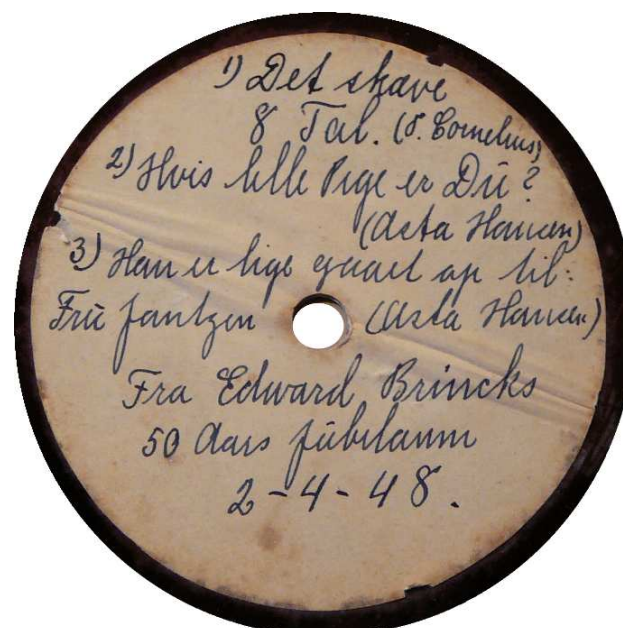 1) Det skæve
8 Tal. (P. Cornelius)
2) Hvis lille Pige er Dū?
(Asta Hansen)
3) Han er lige gaaet op til:
Frū Jantzen (Asta Hansen)
Fra Edward Brincks
50 Aars Jūbilæum
2-4-48.